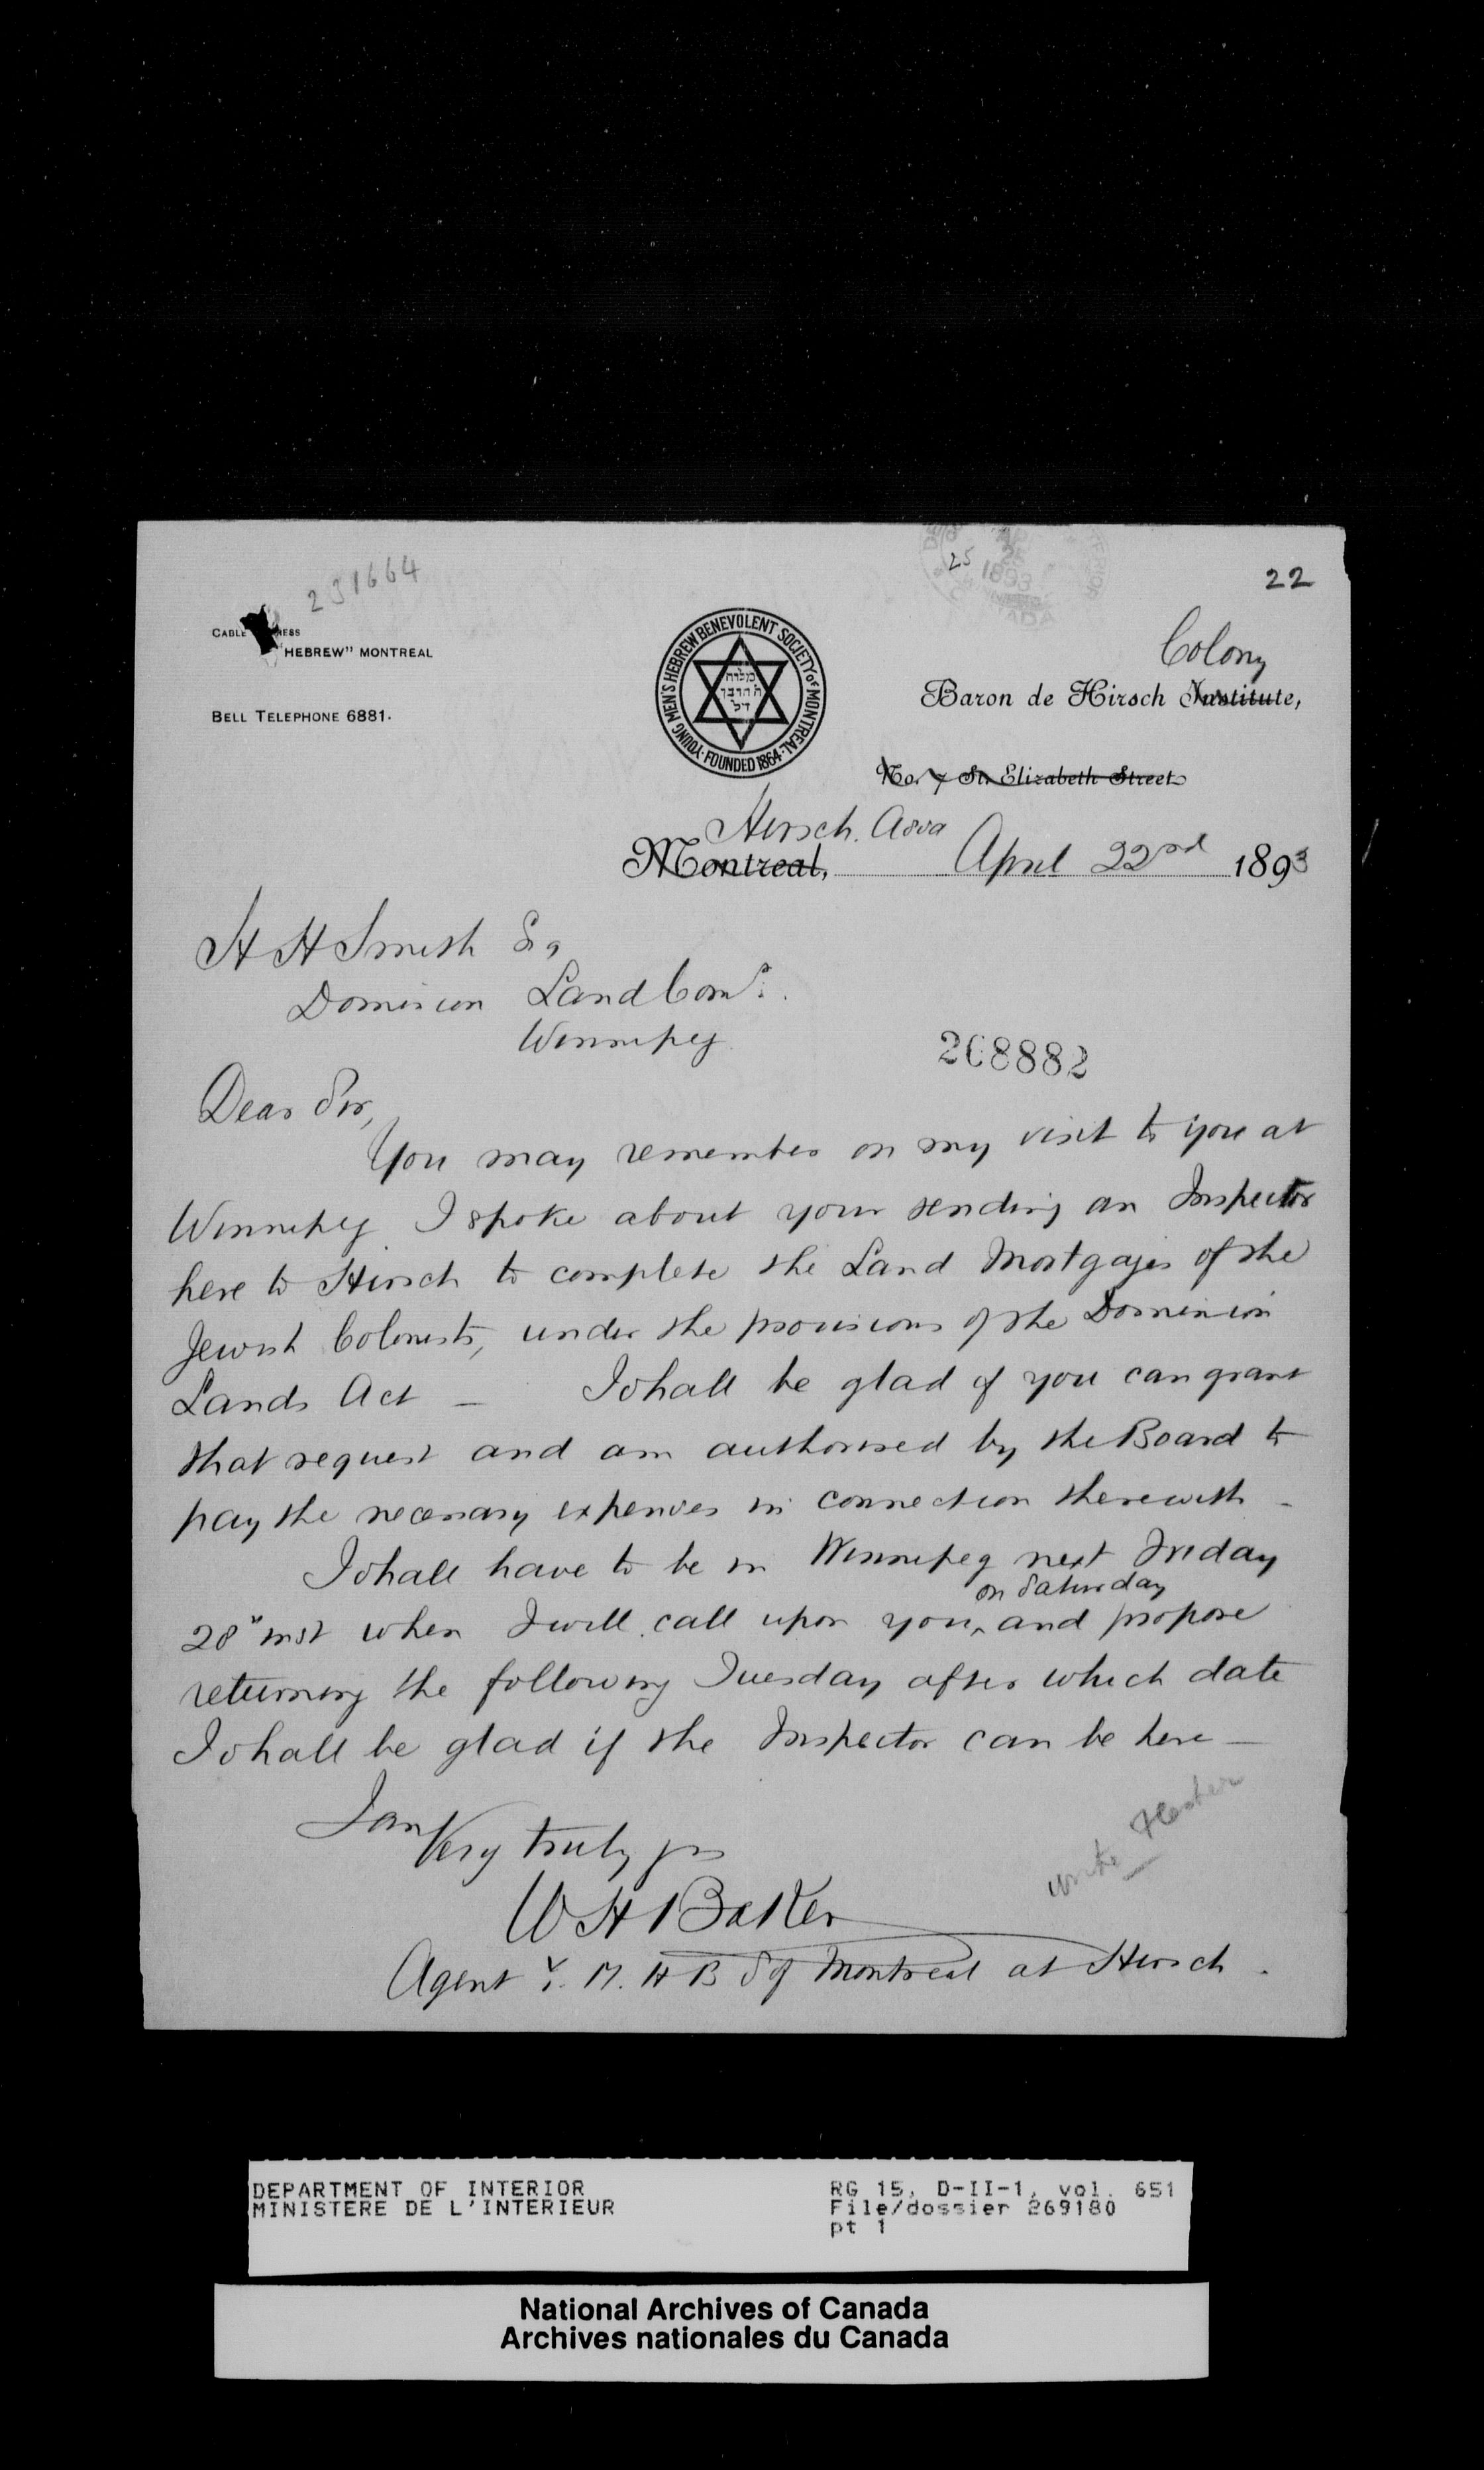 231664
25
1893
22
CABLE ADDRESS
"HEBREW" MONTREAL
BELL TELEPHONE 6881.
YOUNG MEN'S HEBREW BENEVOLENT SOCIETY of MONTREAL · FOUNDED 1864 ·
Colony
Baron de Hirsch Institute,
No. 7 St. Elizabeth Street
Hirsch. Assa
Montreal, April 22nd 1893
H H Smith Eq
Dominion Land Comr.
Winnipeg
268882
Dear Sir,
You may remember on my visit to you at
Winnipeg I spoke about your sending an Inspector
here to Hirsch to complete the Land Mortgages of the
Jewish Colonists, under the provisions of the Dominion
Lands Act – I shall be glad if you can grant
that request and am authorised by the Board to
pay the necessary expenses in connection therewith –
I shall have to be in Winnipeg next Friday
on Saturday
28" inst when I will call upon you, and propose
returning the following Tuesday after which date
I shall be glad if the Inspector can be here –
I am
Very truly yrs
W H Baker
Agent Y. M. H B S of Montreal at Hirsch.
write
DEPARTMENT OF INTERIOR
MINISTERE DE L'INTERIEUR
RG 15, D-II-1, vol. 651
File/dossier 269180
pt 1
National Archives of Canada
Archives nationales du Canada